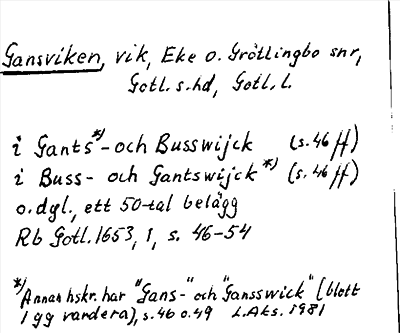 Gansviken, vik, Eke o. Grötlingbo snr,
Gotl. s. hd, Gotl. l.
i Gants*)- och Busswijck (s. 46 ff)
i Buss- och Gantswijck*) (s. 46 ff)
o. dgl., ett 50-tal belägg
Rb Gotl. 1653, 1, s. 46-54
*) Annan hskr. har "Gans-" och "Gansswick" (blott
1 gg vardera), s. 46 o. 49 L. Aks. 1981